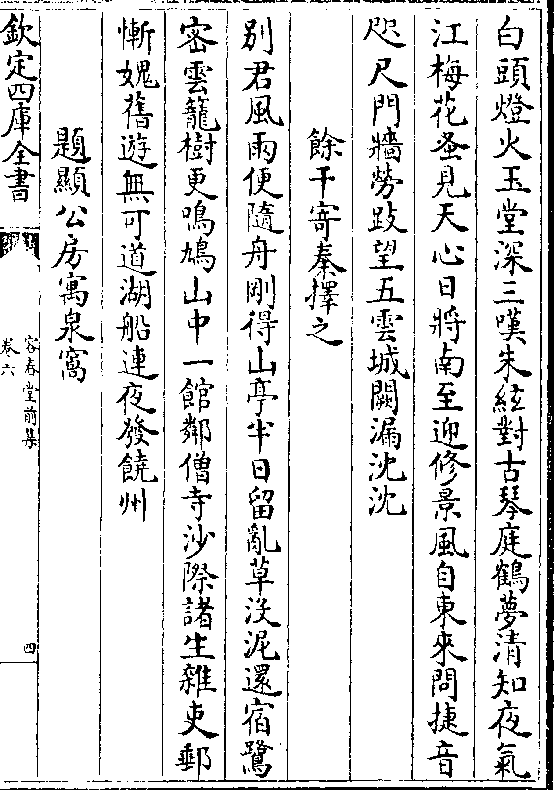 白頭燈火玉堂深三嘆朱絃對古琴庭鶴夢清知夜氣
江梅花蚤見天心日將南至迎修景風自東來問捷音
咫尺門牆勞跂望五雲城闕漏沈沈
餘干寄秦擇之
别君風雨便隨舟剛得山亭半日留亂草没泥還宿鷺
宻雲籠樹更鳴鳩山中一館鄰僧寺沙際諸生雜吏郵
慚媿舊遊無可道湖船連夜發饒州
題顯公房寓泉窩
欽定四庫全書
容春堂前集
卷六
四